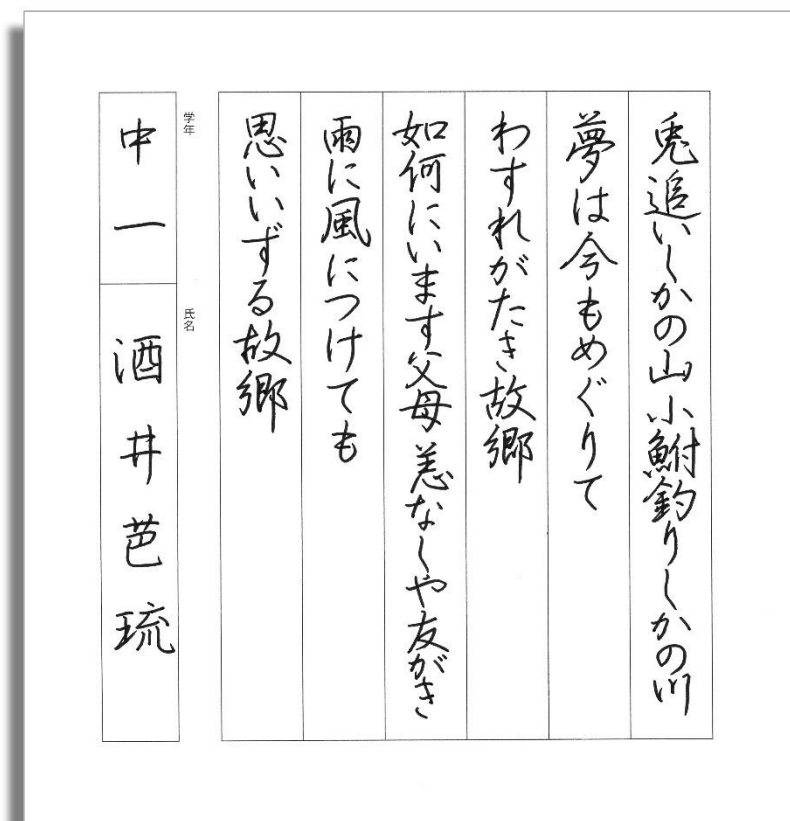 兎追いしかの山小鮒釣りしかの川
夢は今もめぐりて
わすれがたき故郷
如何にいます父母恙なしや友がき
雨に風につけても
思いいずる故郷
学年
中一
氏名
酒井芭琉